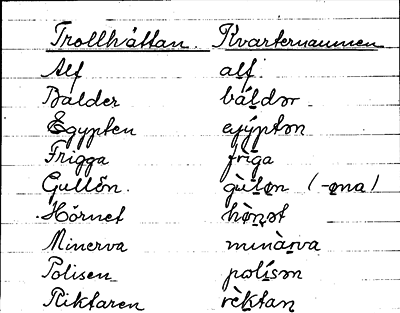 Trollhättan. Kvarternamnen
Alf alf.
Balder báldər
Egypten ejýptən
Frigga frìga
Gullön. gùløn (-øna)
Hörnet hö̀ṇət
Minerva minàrva
Polisen polísən
Riktaren rèktaṇ